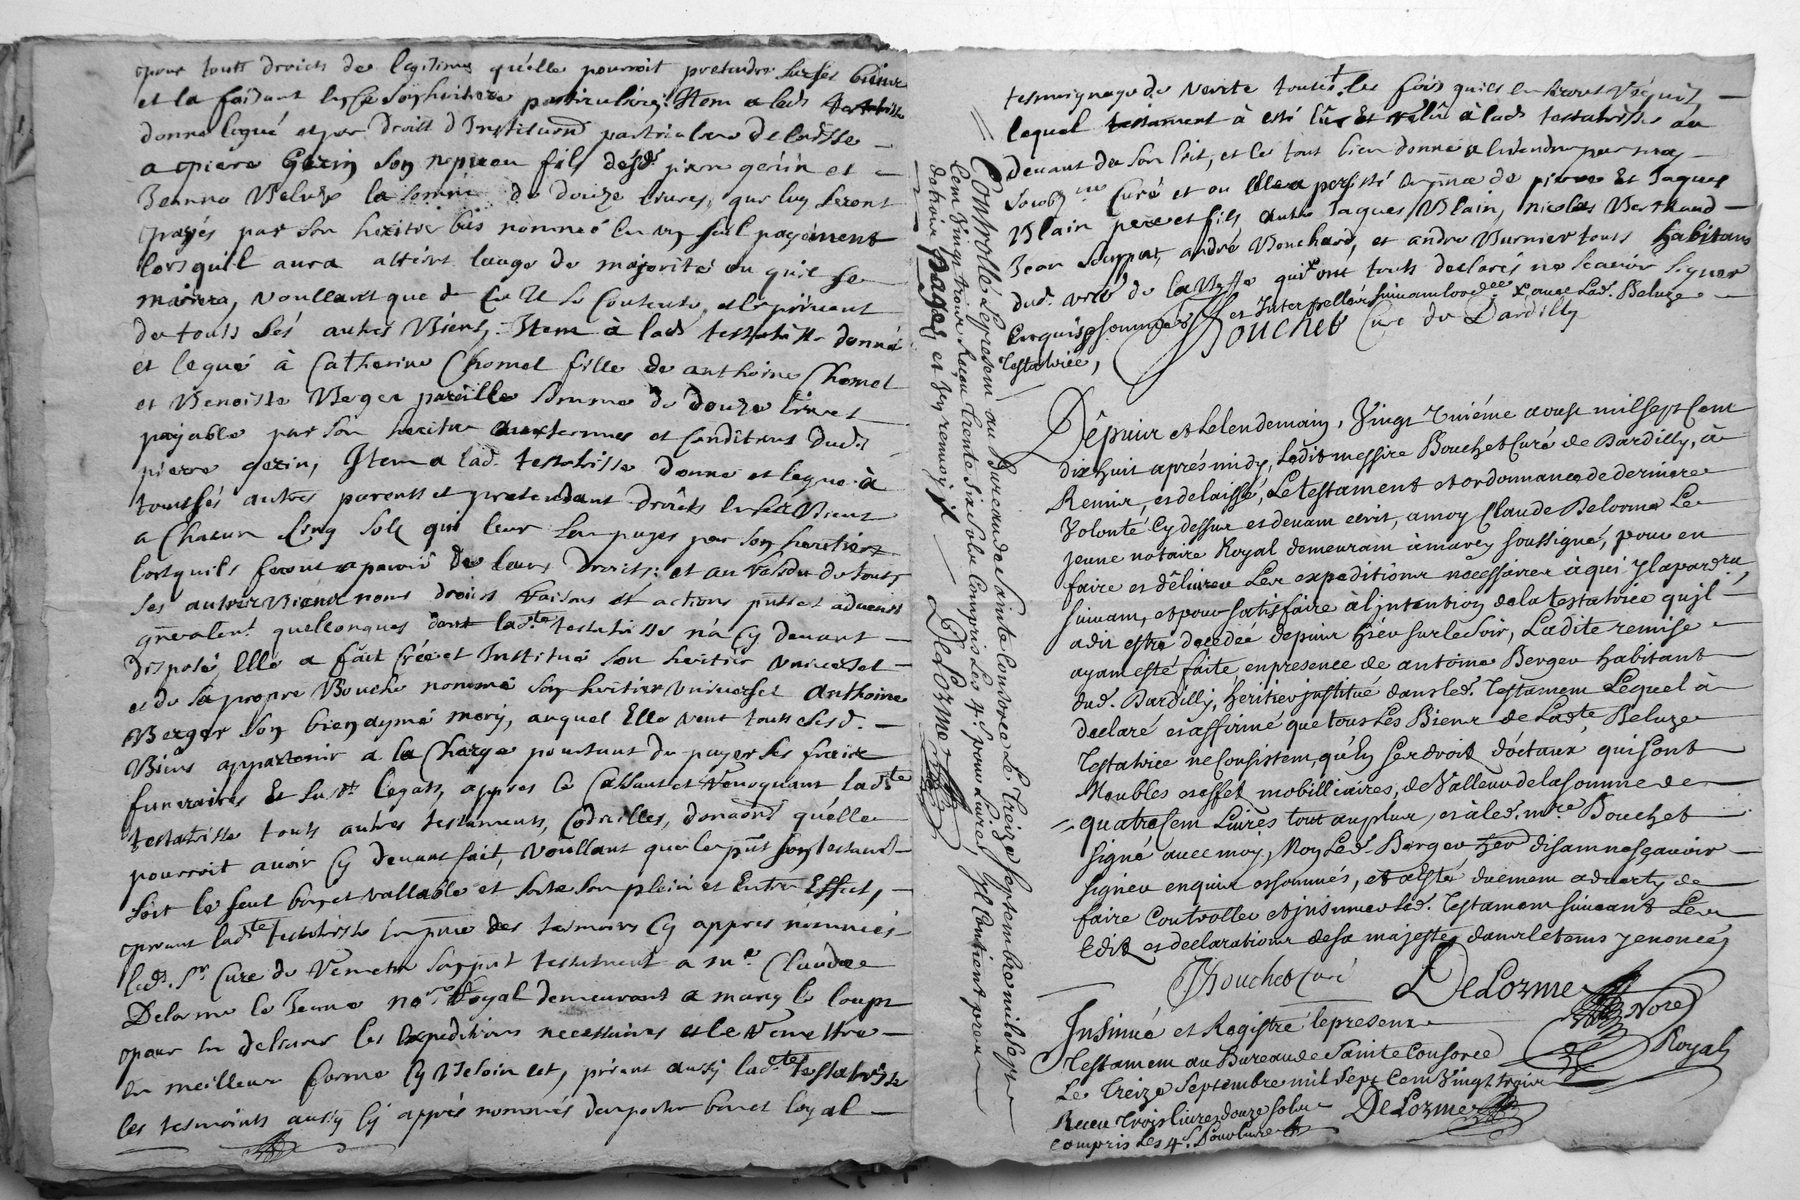 pour touts droicts de legitimes qu'elle pourroit pretendre sur ses biens
et la faisant son heritiere particuliere; Item a lad. testatrisse
donne legué et par droit d'Institution particuliere delaisse
a piere Gerin son nepveu fils de sd. piere gerin et
Jeanne Beluze la somme de douze livres, que luy seront
payés par son heritier bas nommé en un seul payement
lors qu'il aura atteint l'auge de majorité ou qu'il se
mariera, voullant que de ce Il se contente, et le privant
de touts ses autres Biens; Item à lad. testatrisse donné
et legué à Catherine Chomel fille de anthoine Chomel
et Benoiste Berger pareille somme de douze livres
payable par son heritier aux termes et conditions dud.
pierre gerin, Item a lad. testatrisse donne et legue à
touts sés autres parents et pretendant droits en ses Biens
a chacun cinq sols qui leur sera payes par son heritier
lorsquils feront aparoir de leurs droits; et au residu de touts
ses autres Biens noms droicts raisons et actions pnts et advenir
gñralent quelconques dont lad.te testatrisse n'a cy devant
disposé, Elle a fait créé et Institué son heritier universel
et de sa propre Bouche nommé son heritier universel anthoine
Berger son bien aymé mary, auquel Elle veut touts sesd.
Biens appartenir a la charge pourtant de payer ses fraix
funeraires et susd. legats, appres ce cassant et revoquant lad.te
testatrisse touts autres testaments, codicilles, donaons qu'elle
pourroit avoir cy devant fait, voullant que le pnt son testamt
soit le seul bon et vallable et sorte son plein et entier Effect,
priant lad.te testatrisse en pnce des tesmoins cy appres nommés
led. Sr. Curé de remettre son pnt testament a me. Claude
Delorme le Jeune nore Royal demeurant a marcy le loup
pour en delivrer les expeditions necessaires et le remettre
en meilleur forme sy besoin est, priant aussy lad.te testatrisse
les tesmoints aussy cy apprés nommés d'en porter bon et loyal
Controllé le present au Bureau de Sainte Consorce le treize septembre mil sept
cent vingt trois Receu trente six sols compris les 4s. pour livre, Il contient pres
de trois pages et un renvoy
DeLorme
tesmoignage de verité toutes les fois quils en seront réquis
lequel testament à esté lû et relû à lad. testatrisse au
devant de son lict, et le tout bien donné a entendre par moy
Curé et ou elle a persisté en pnce de pierre et Jaques
Blain pere et fils autre Jaques Blain, nicolas Berthaud
Jean Souppat, andré Bouchard, et andré Burnier touts habitans
dud. qui ont touts declarés ne scavoir signer
Enquis sommés et Interpellés suivant l'ordce. avec lad. Beluze
testatrice,
JBouchet Curé de Dardilly
Dêpuis et le lendemain, Vingt uniéme aoust mil sept cent
dix huit aprés midy, Ledit messire Bouchet Curé de Dardilly, à
Remis, et delaissé, Le testament et ordonnance de derniere
Volonté cy dessus et devant ecrit, a moy Claude Delorme Le
jeune notaire Royal demeurant à marcy soussigné, pour en
faire et délivrer les expeditions necessaires à qui Il apardra,
suivant, et pour satisfaire à l'intention de la testatrice quil
a dit estre decedée depuis hiér sur le soir, Ladite remise
ayant esté faite en presence de antoine Berger habitant
dud. Dardilly, heritier jnstitué dans led. Testament Lequel à
declaré et affirmé que tous Les Biens de Ladte. Beluze
Testatrice ne consistent, qu'En ses droit dôctaux, qui sont
Meubles et effet mobilliaires, de Valleur de la somme de
quatre cent Livres tout au plus, et à led. mre Bouchet
signé avec moy, Non Led. Berger disant ne sçavoir
signer enquis et sommés, et à esté duement adverty de
faire Controller et jnsinuer Led. Testament suivant Les
Edit et declarations de sa majesté, dans le tems y enoncés
JBouchet Curé
DeLorme
Nore
Royal
Jnsinué et Registré le present
Testament au Bureau de Sainte Consorce
Le treize septembre mil sept Cent vingt trois
Receu trois livres douze sols
compris les 4s. pour livre
DeLorme